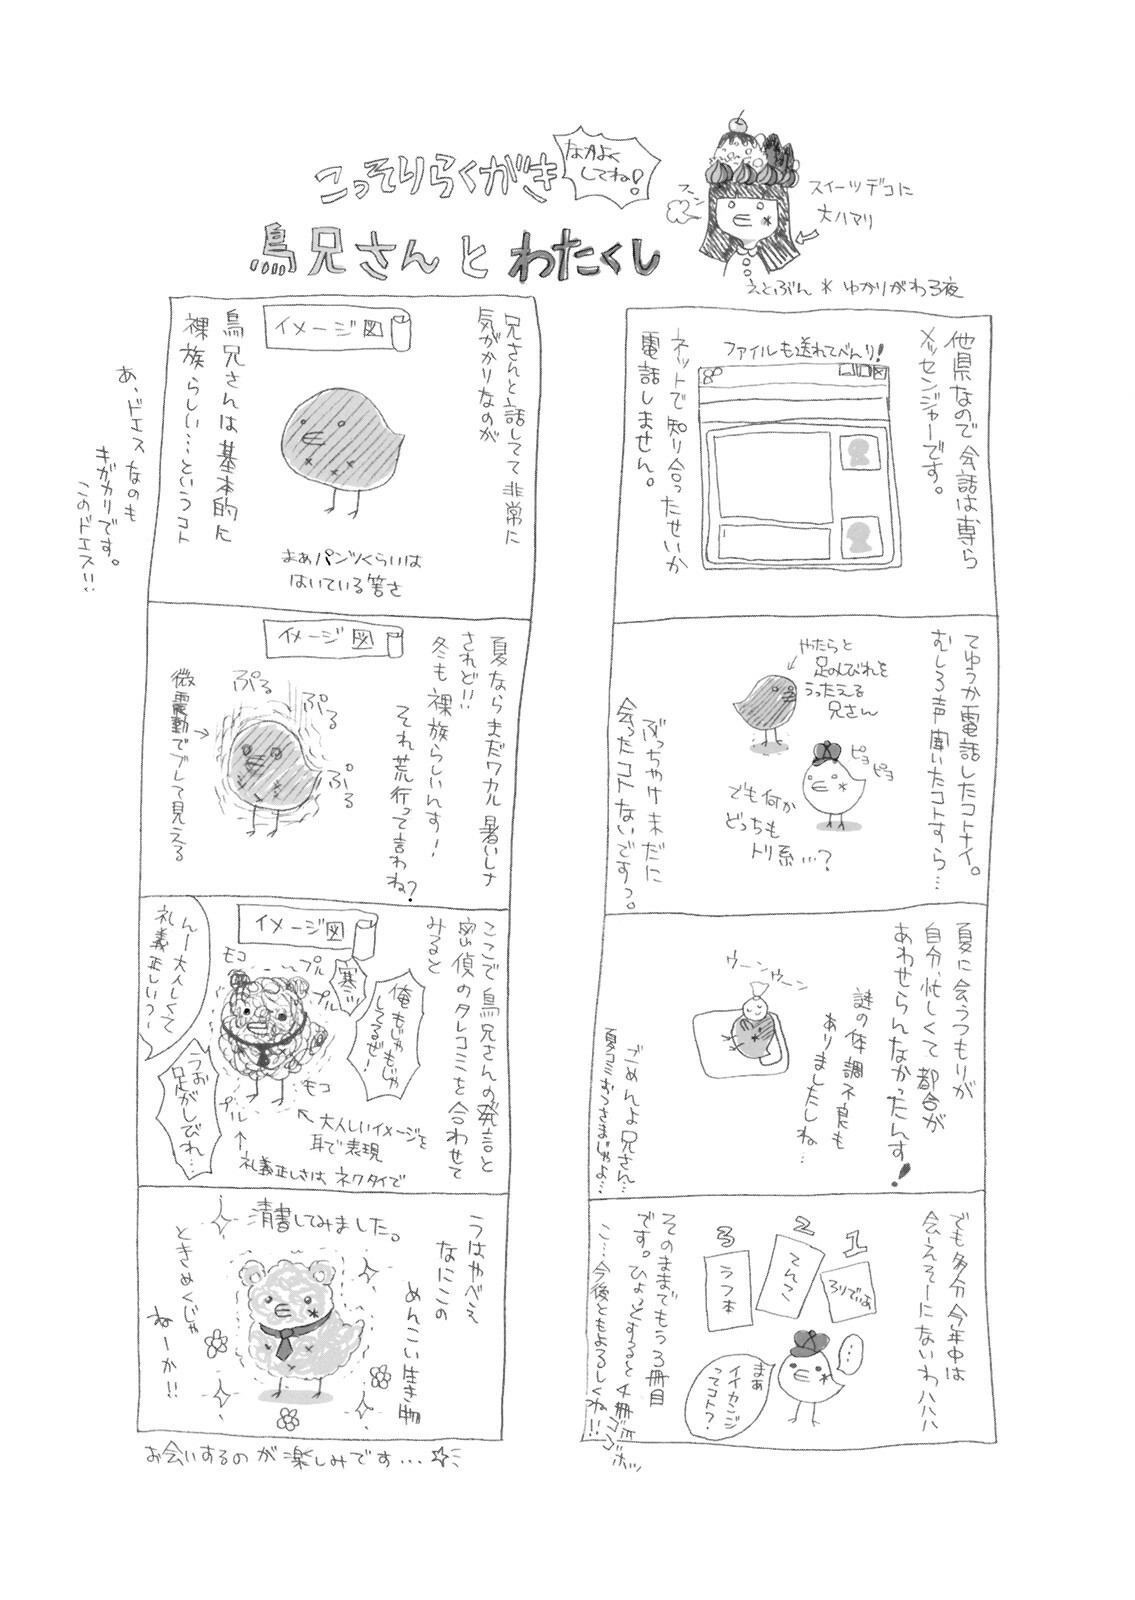 こっそりらくがき
なかよく
してね!
鳥兄さんとわたくし
フンッ
スイーツデコに
大ハマリ
えとぶん * ゆかりがわる夜
他県なので会話は専ら
メッセンジャーです。
ファイルも送れてべんり!
ネットで知り合ったせいか
電話しません。
てゆうか電話したコトナイ。
むしろ声聞いたコトすら…
やたらと
足のしびれを
うったえる
兄さん
ピヨ
ピヨ
でも何か
どっちも
トリ系…?
ぶっちゃけ未だに
会ったコトないですっ。
夏に会うつもりが
自分、忙しくて都合が
あわせらんなかったんす!
謎の体調不良も
ありましたしね…
ウーンウーン
ごめんよ兄さん…
夏コミおつさまじゃよ…
でも多分今年中は
会ーえそーにないわハハハ
1
2
3
ろりでぃあ
てんごく
うつ本
…
まぁ
イイカンジ
ってコト?
そのままでもう3冊目
です。ひょっとすると4冊ゴゴホッ
こ…今後ともよろしくね!!
兄さんと話してて非常に
気がかりなのが
イメージ図
鳥兄さんは基本的に
裸族らしい…というコト
まぁパンツくらいは
はいている筈さ
あ、ドエスなのも
キガカリです。
このドエス!!
夏ならまだワカル暑いしさ
されど!!
冬も裸族らしいんす!
それ荒行って言わね?
イメージ図
ぷる
ぷる
ぷる
微震動でブレて見える
ここで鳥兄さんの発言と
密偵のタレコミを合わせて
みると
イメージ図
俺もじゃもじゃ
してるぜ!
寒ッ
モコ
プル
プル
んー大人しくて
礼義正しい?
うお
足がしびれ…
モコ
プル
大人しいイメージを
耳で表現
礼義正しさは、ネクタイで
うはやべえ
なにこの
めんこい生き物
清書してみました。
ときめくじゃ
ねーか!!
お会いするのが楽しみです…☆